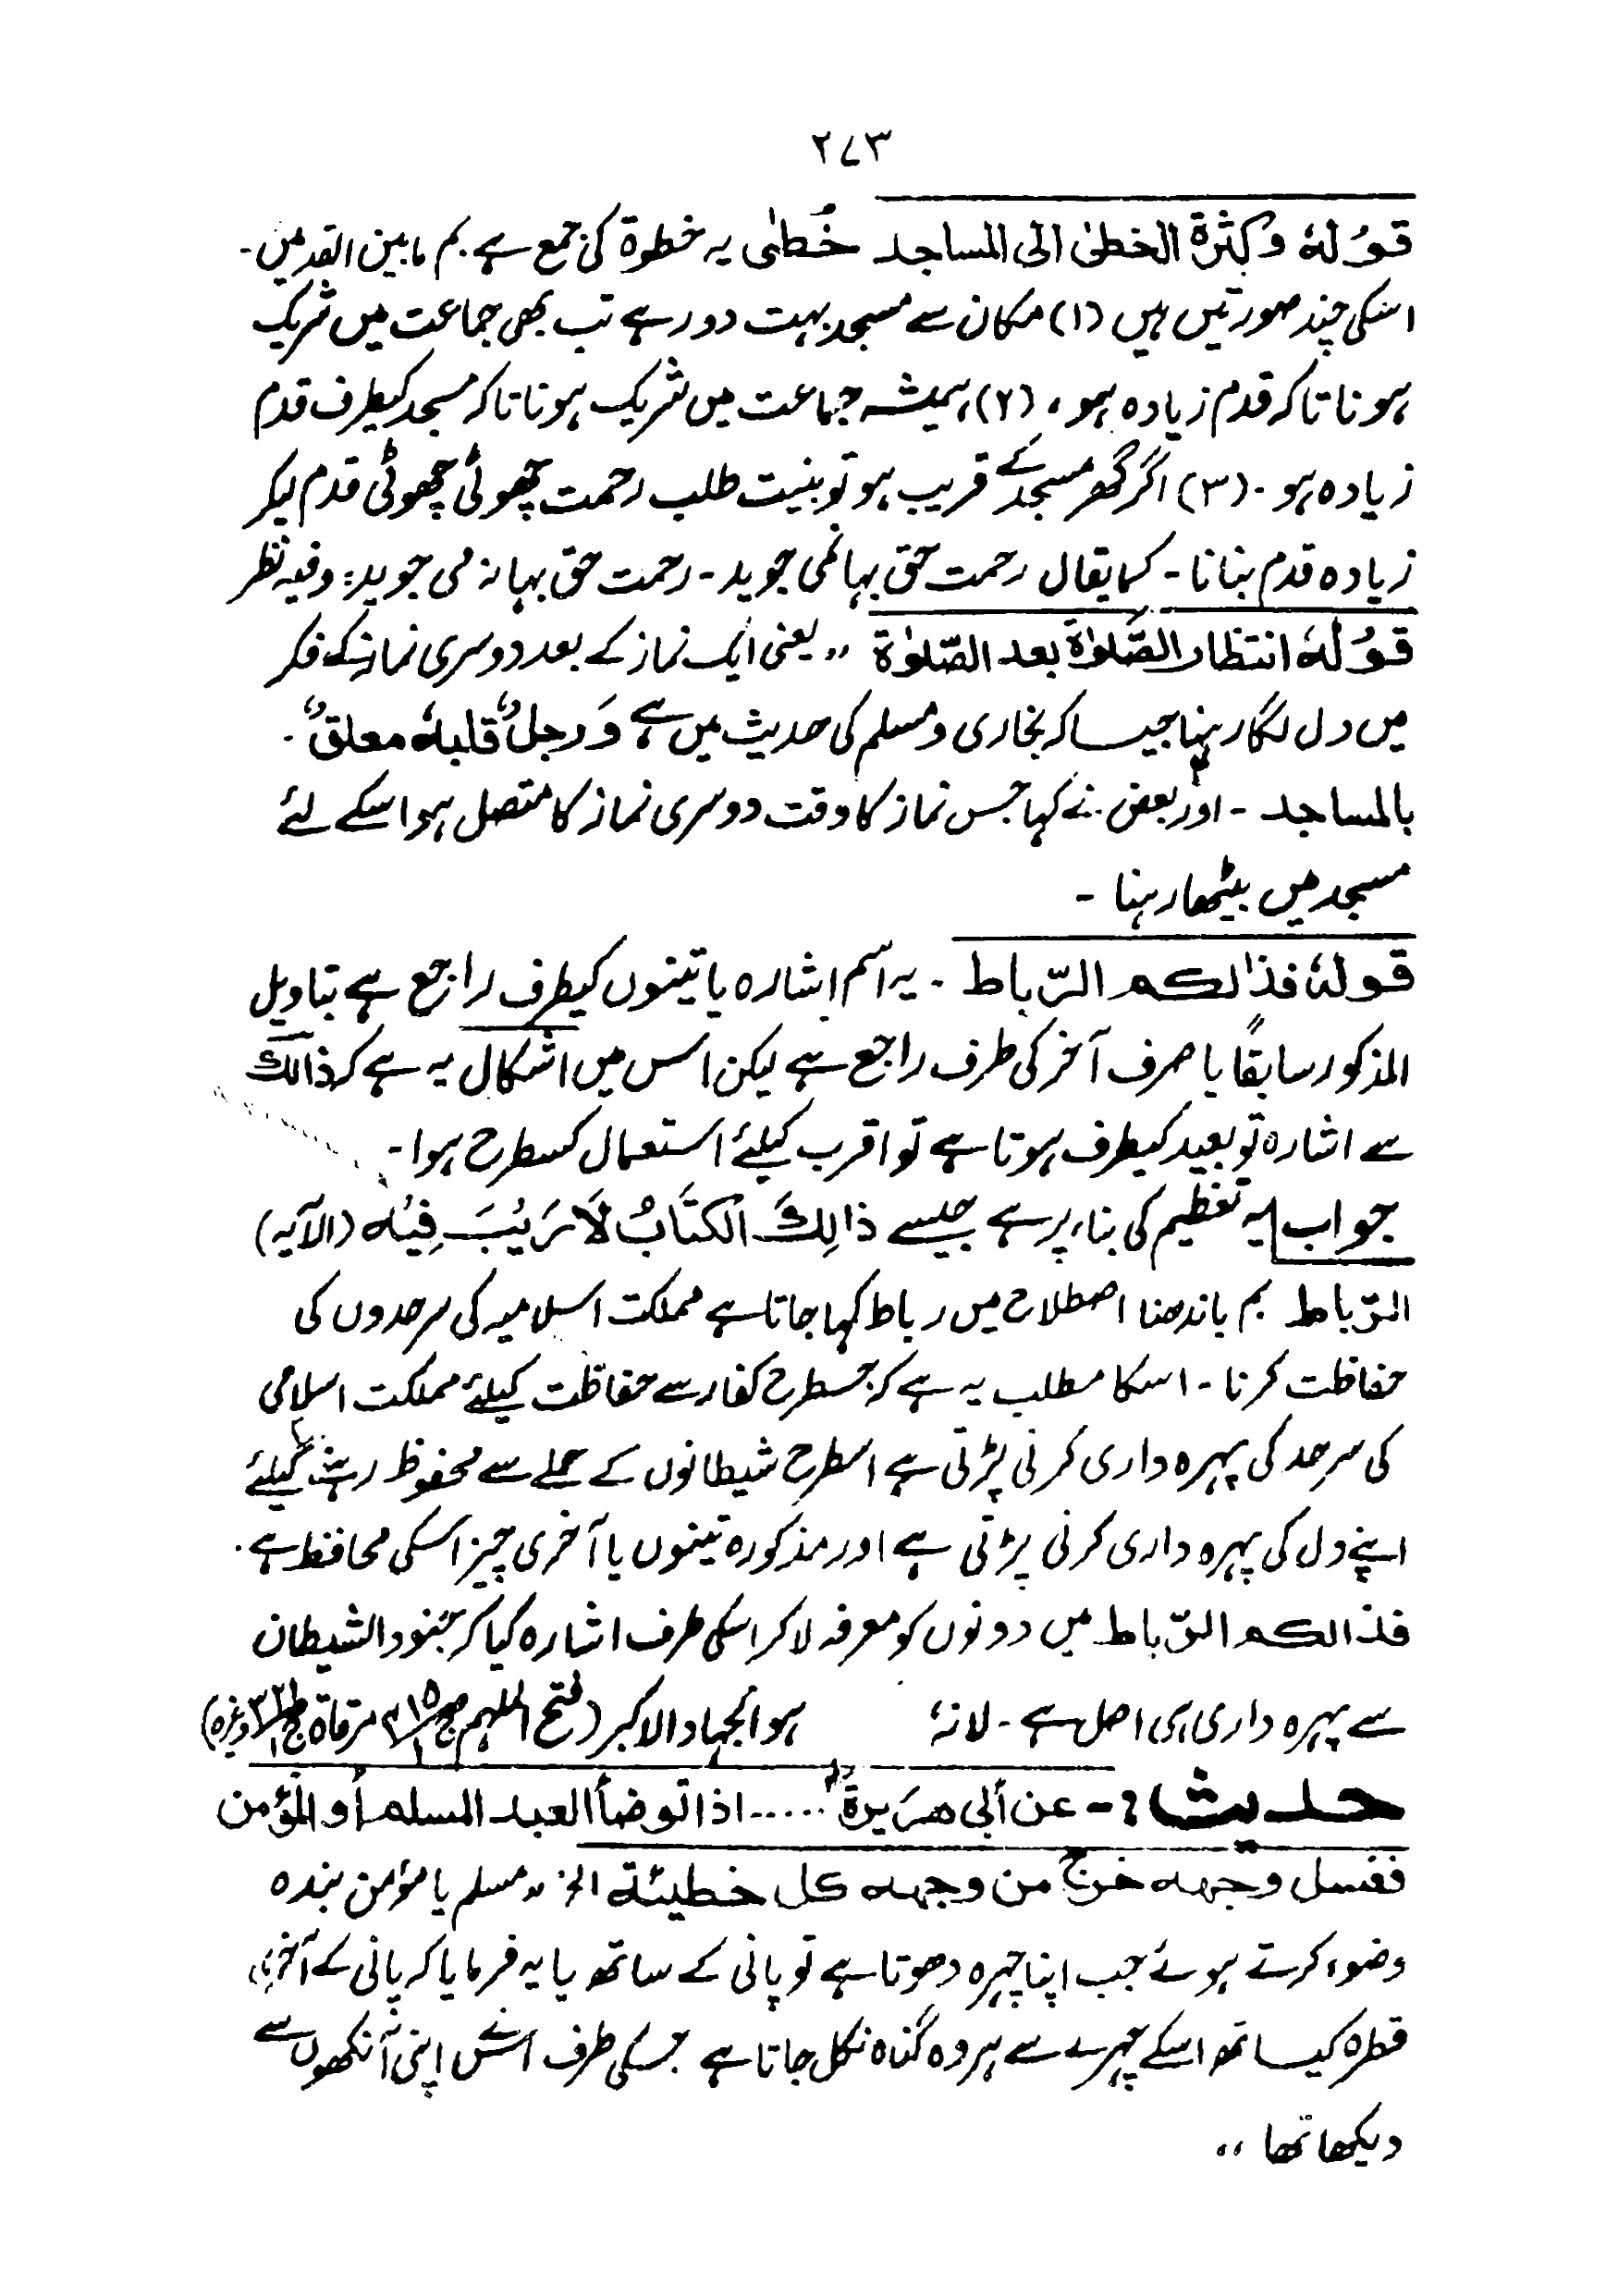 ۲۷۳
قولہٗ وکثرۃ الخطیٰ الی المساجد خُطیٰ یہ خطوۃ کی جمع ہے بم مابین القدمین۔
اسکی چند صورتیں ہیں (۱) مکان سے مسجد بہت دور ہے تب بھی جماعت میں شریک
ہونا تاکہ قدم زیادہ ہو، (۲) ہمیشہ جماعت میں شریک ہونا تاکہ مسجد کیطرف قدم
زیادہ ہو۔ (۳) اگر گھر مسجد کے قریب ہو تو بنیت طلب رحمت چھوٹی چھوٹی قدم لیکر
زیادہ قدم بنانا۔ کما یقال رحمت حق بہا نمی جوید۔ رحمت حق بہانہ می جوید: وفیہ نظر
قولہٗ انتظار الصّلوٰۃ بعد الصّلوٰۃ ,, یعنی ایک نماز کے بعد دوسری نماز کے فکر
میں دل لگا رہنا جیسا کہ بخاری و مسلم کی حدیث میں ہے وَرجلٌ قلبہٗ معلقٌ۔
بالمساجد۔ اور بعض نے کہا جس نماز کا وقت دوسری نماز کا متصل ہو اسکے لئے
مسجد میں بیٹھا رہنا۔
قولہٗ فذٰلکم الرّباط ۔ یہ اسم اشارہ یا تینوں کیطرف راجع ہے بتاویل
المذکور سابقًا یا صرف آخر کی طرف راجع ہے لیکن اس میں اشکال یہ ہے کہ ذالک
سے اشارہ تو بعید کیطرف ہوتا ہے تو اقرب کیلئے استعمال کسطرح ہوا۔
جواب یہ تعظیم کی بناء پر ہے جیسے ذالِکَ الْکتَابُ لَا رَیْبَ فِیْہ (الآیہ)
الرّباط بم باندھنا اصطلاح میں رباط کہا جاتا ہے مملکت اسلامیہ کی سرحدوں کی
حفاظت کرنا۔ اسکا مطلب یہ ہے کہ جسطرح کفار سے حفاظت کیلئے مملکت اسلامی
کی سرحد کی پہرہ داری کرنی پڑتی ہے اسطرح شیطانوں کے حملے سے محفوظ رہنے کیلئے
اپنے دل کی پہرہ داری کرنی پڑتی ہے اور مذکورہ تینوں یا آخری چیز اسکی محافظ ہے۔
فذالکم الرّباط میں دونوں کو معرفہ لاکر اسکی طرف اشارہ کیا کہ جنود الشیطان
سے پہرہ داری ہی اصل ہے۔ لانہٗ ہو الجہاد الاکبر (فتح الملہم مرقاۃ وغیرہ)
حدیث :- عن أبی ھریرۃ ..... اذا توضأ العبد المسلم أو المؤمن
فغسل وجھہ خرج من وجھہ کل خطیئۃ الخ ,, مسلم یا مؤمن بندہ
وضوء کرتے ہوئے جب اپنا چہرہ دھوتا ہے تو پانی کے ساتھ یا یہ فرمایا کہ پانی کے آخری
قطرہ کیساتھ اسکے چہرے سے ہر وہ گناہ نکل جاتا ہے جسکی طرف اس نے اپنی آنکھوں سے
دیکھا تھا ,,